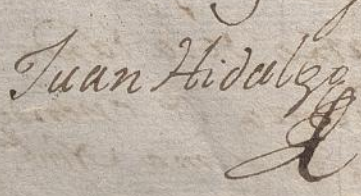 Juan Hidalgo